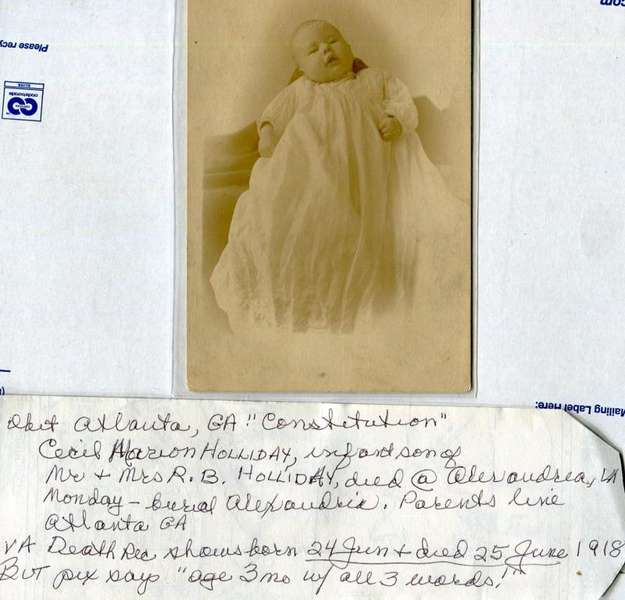 Please recy
.com
Mailing Label Here:
obit Atlanta, GA "Constitution"
Cecil Marion HOLLIDAY, infant son of
Mr + Mrs R. B. HOLLIDAY, died @ Alexandrea, VA
Monday - burial Alexandria. Parents live
Atlanta GA
VA Death Rec shows born 24 Jun + died 25 June 1918
BUT pix says "age 3 mo w/ all 3 words!"